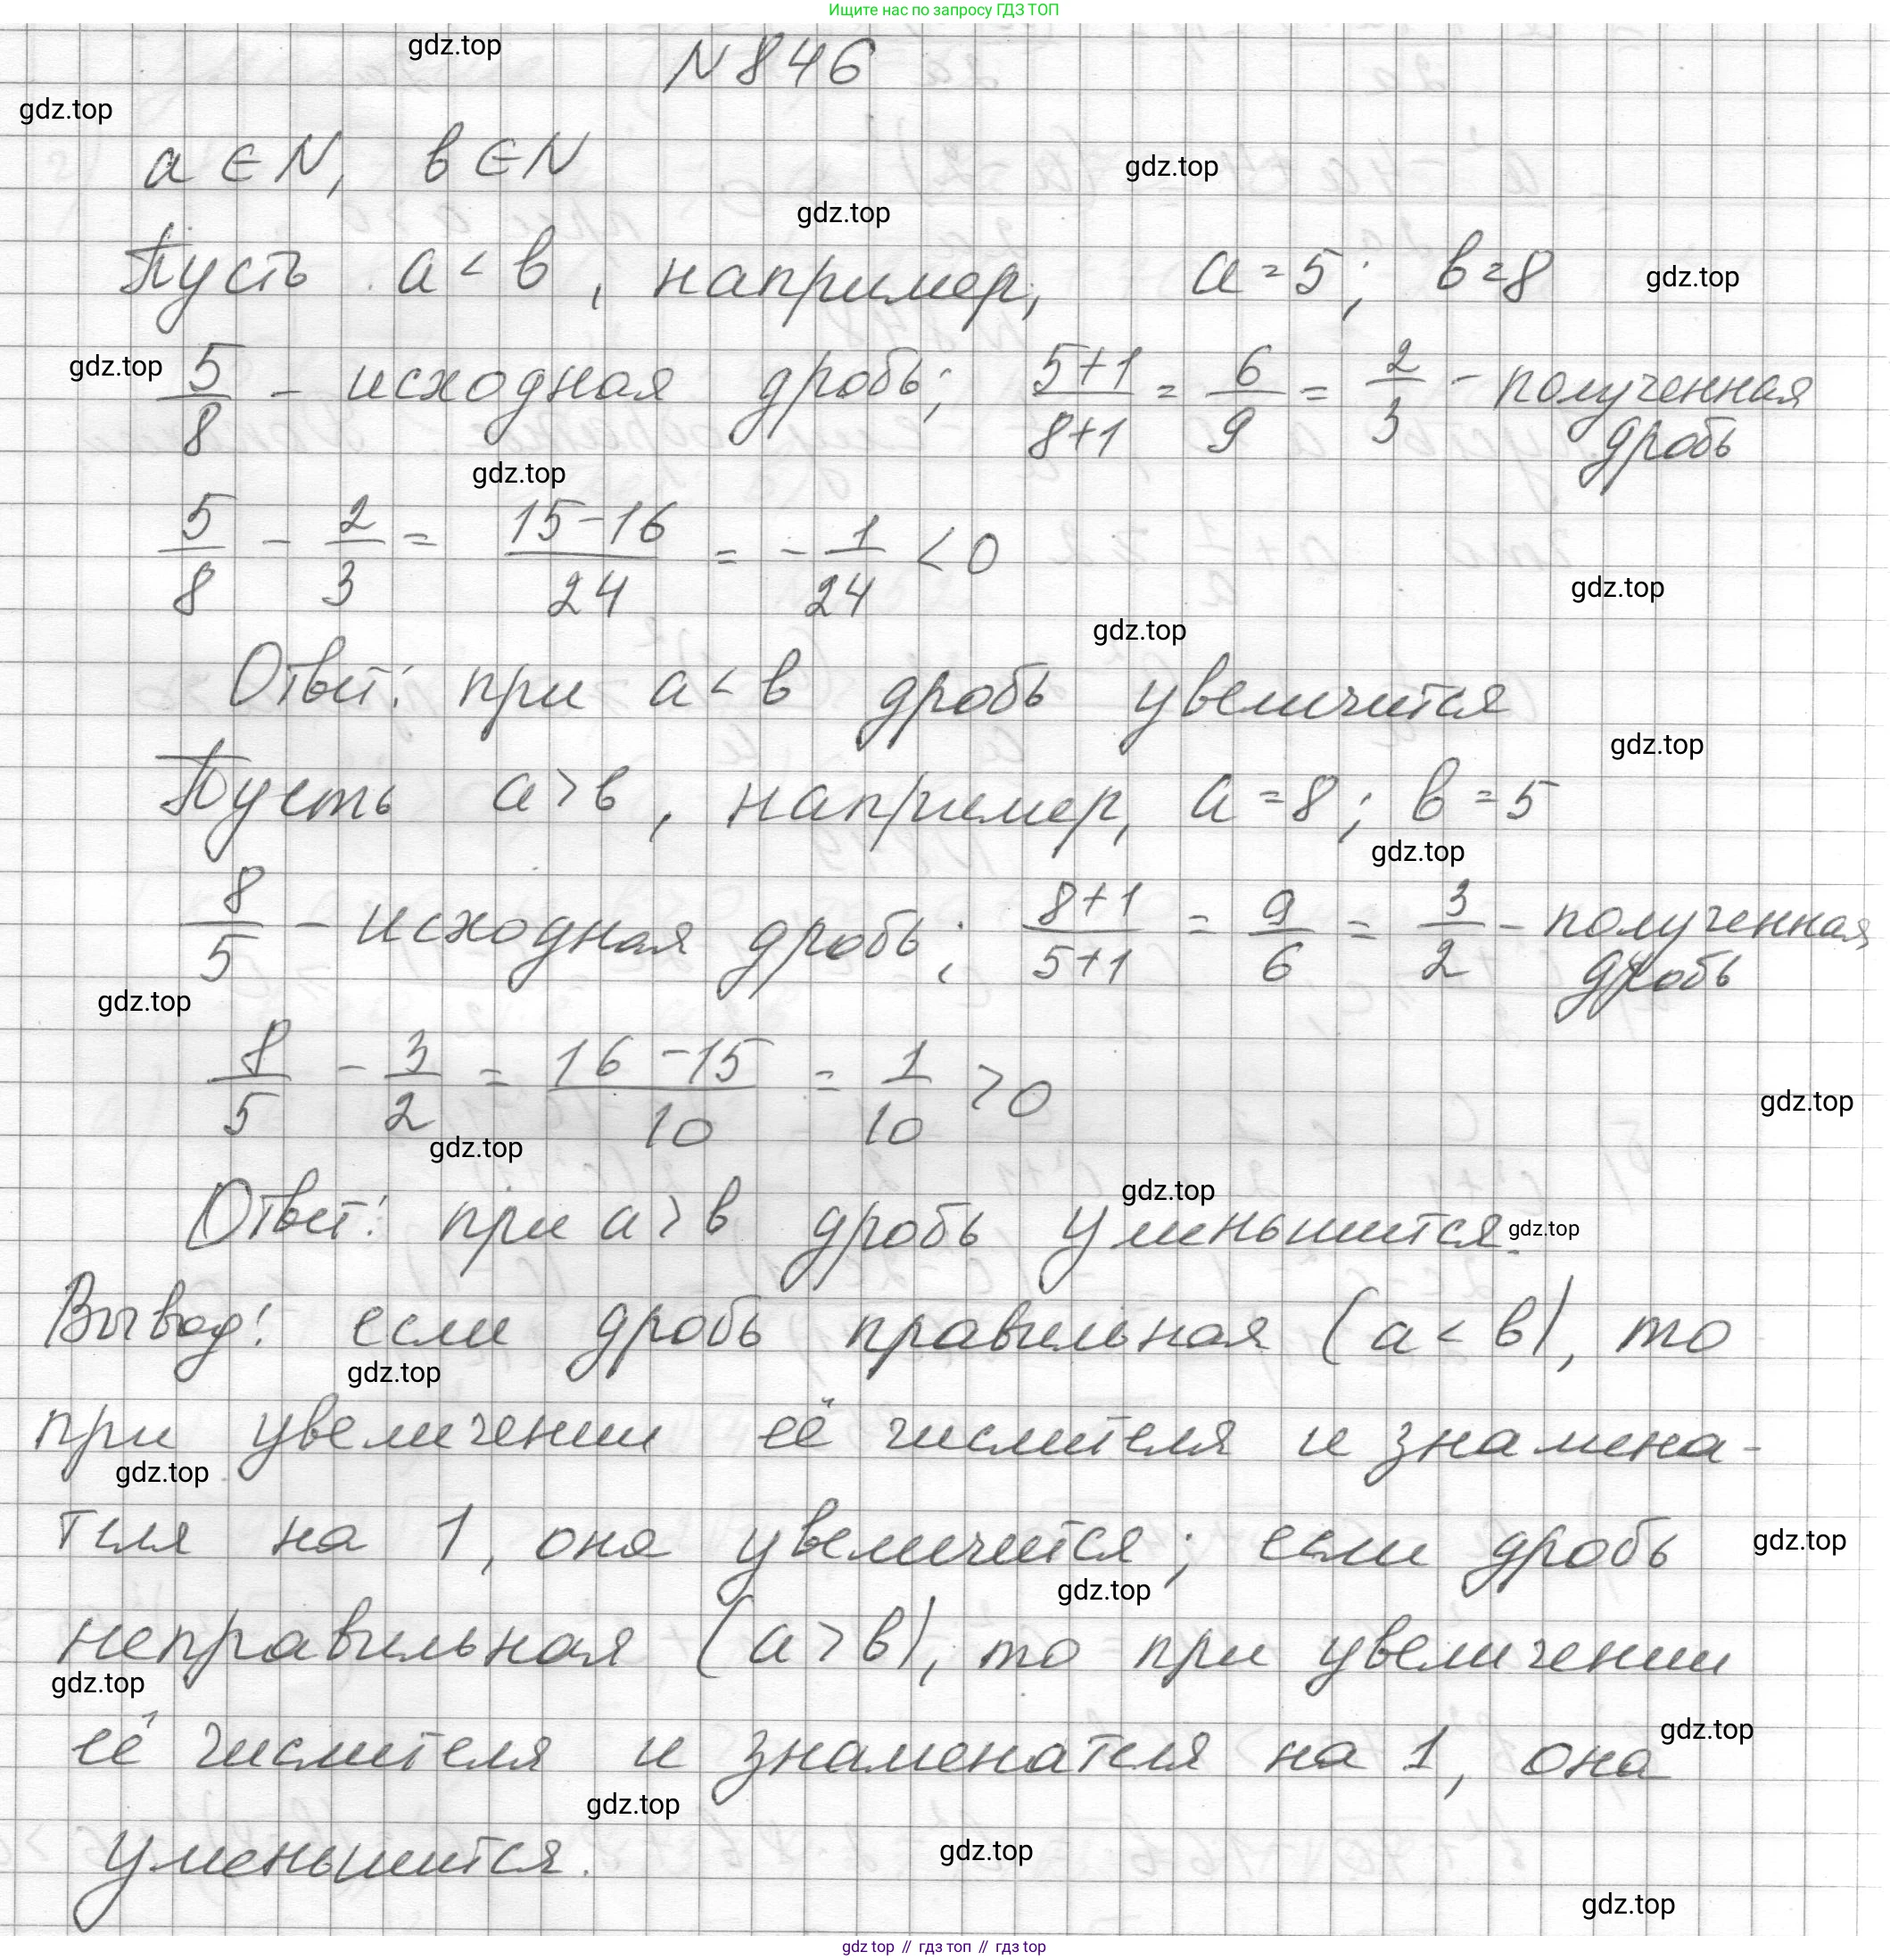 Ищите нас по запросу ГДЗ ТОП
gdz.top
N 846
gdz.top
a ∈ N, b ∈ N
gdz.top
gdz.top
Пусть a < b, например, a = 5; b = 8
gdz.top
gdz.top
5/8 - исходная дробь; (5+1)/(8+1) = 6/9 = 2/3 - полученная
дробь
gdz.top
5/8 - 2/3 = (15-16)/24 = -1/24 < 0
gdz.top
gdz.top
Ответ: при a < b дробь увеличится
gdz.top
Пусть a > b, например, a = 8; b = 5
gdz.top
8/5 - исходная дробь; (8+1)/(5+1) = 9/6 = 3/2 - полученная
дробь
gdz.top
8/5 - 3/2 = (16-15)/10 = 1/10 > 0
gdz.top
gdz.top
gdz.top
Ответ: при a > b дробь уменьшится.
gdz.top
Вывод: если дробь правильная (a < b), то
gdz.top
при увеличении её числителя и знамена-
gdz.top
теля на 1, она увеличится; если дробь
gdz.top
gdz.top
неправильная (a > b), то при увеличении
gdz.top
её числителя и знаменателя на 1, она
gdz.top
gdz.top
уменьшится.
gdz.top
gdz.top
gdz top // гдз топ // гдз top